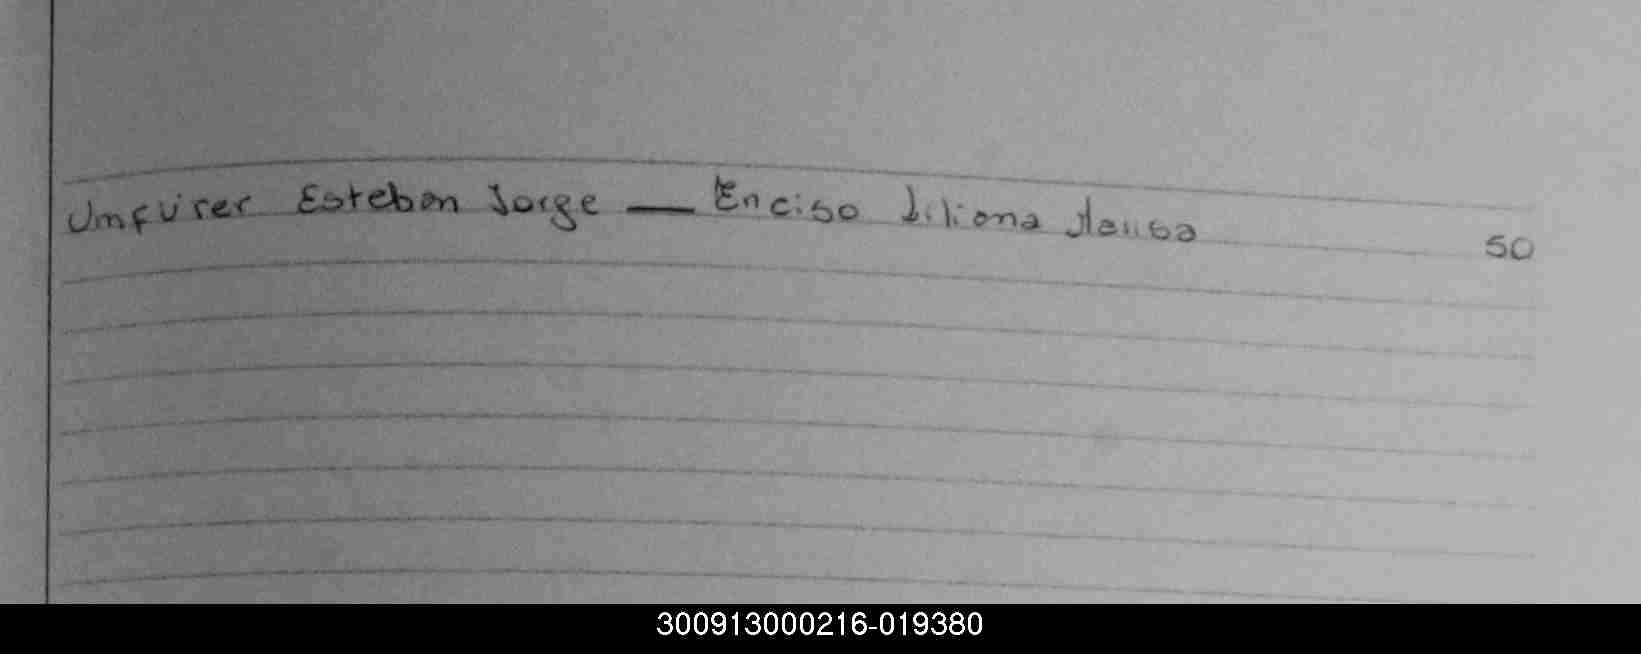 Umfurer Esteban Jorge — Enciso Liliana Marisa 50
300913000216-019380